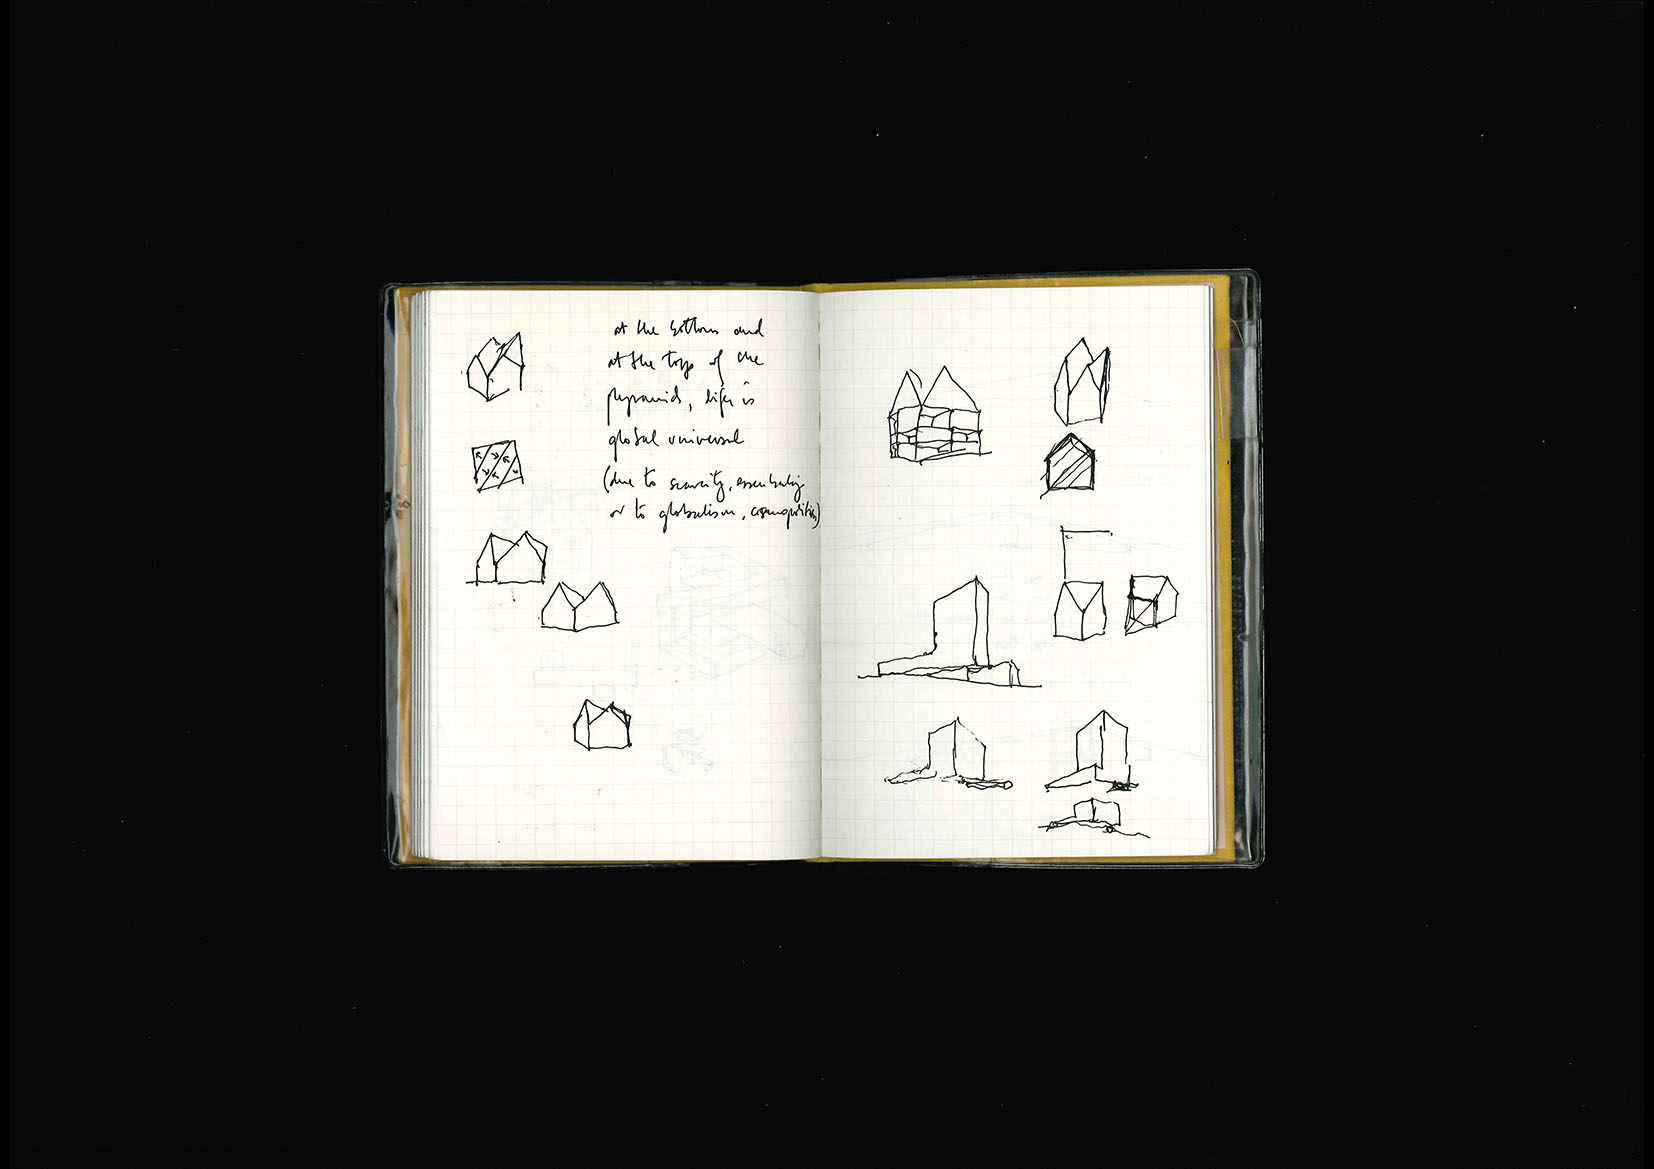 at the bottom and
at the top of the
pyramid, life is
global universal
(due to scarcity, essentiality
or to globalism, cosmopolitism)